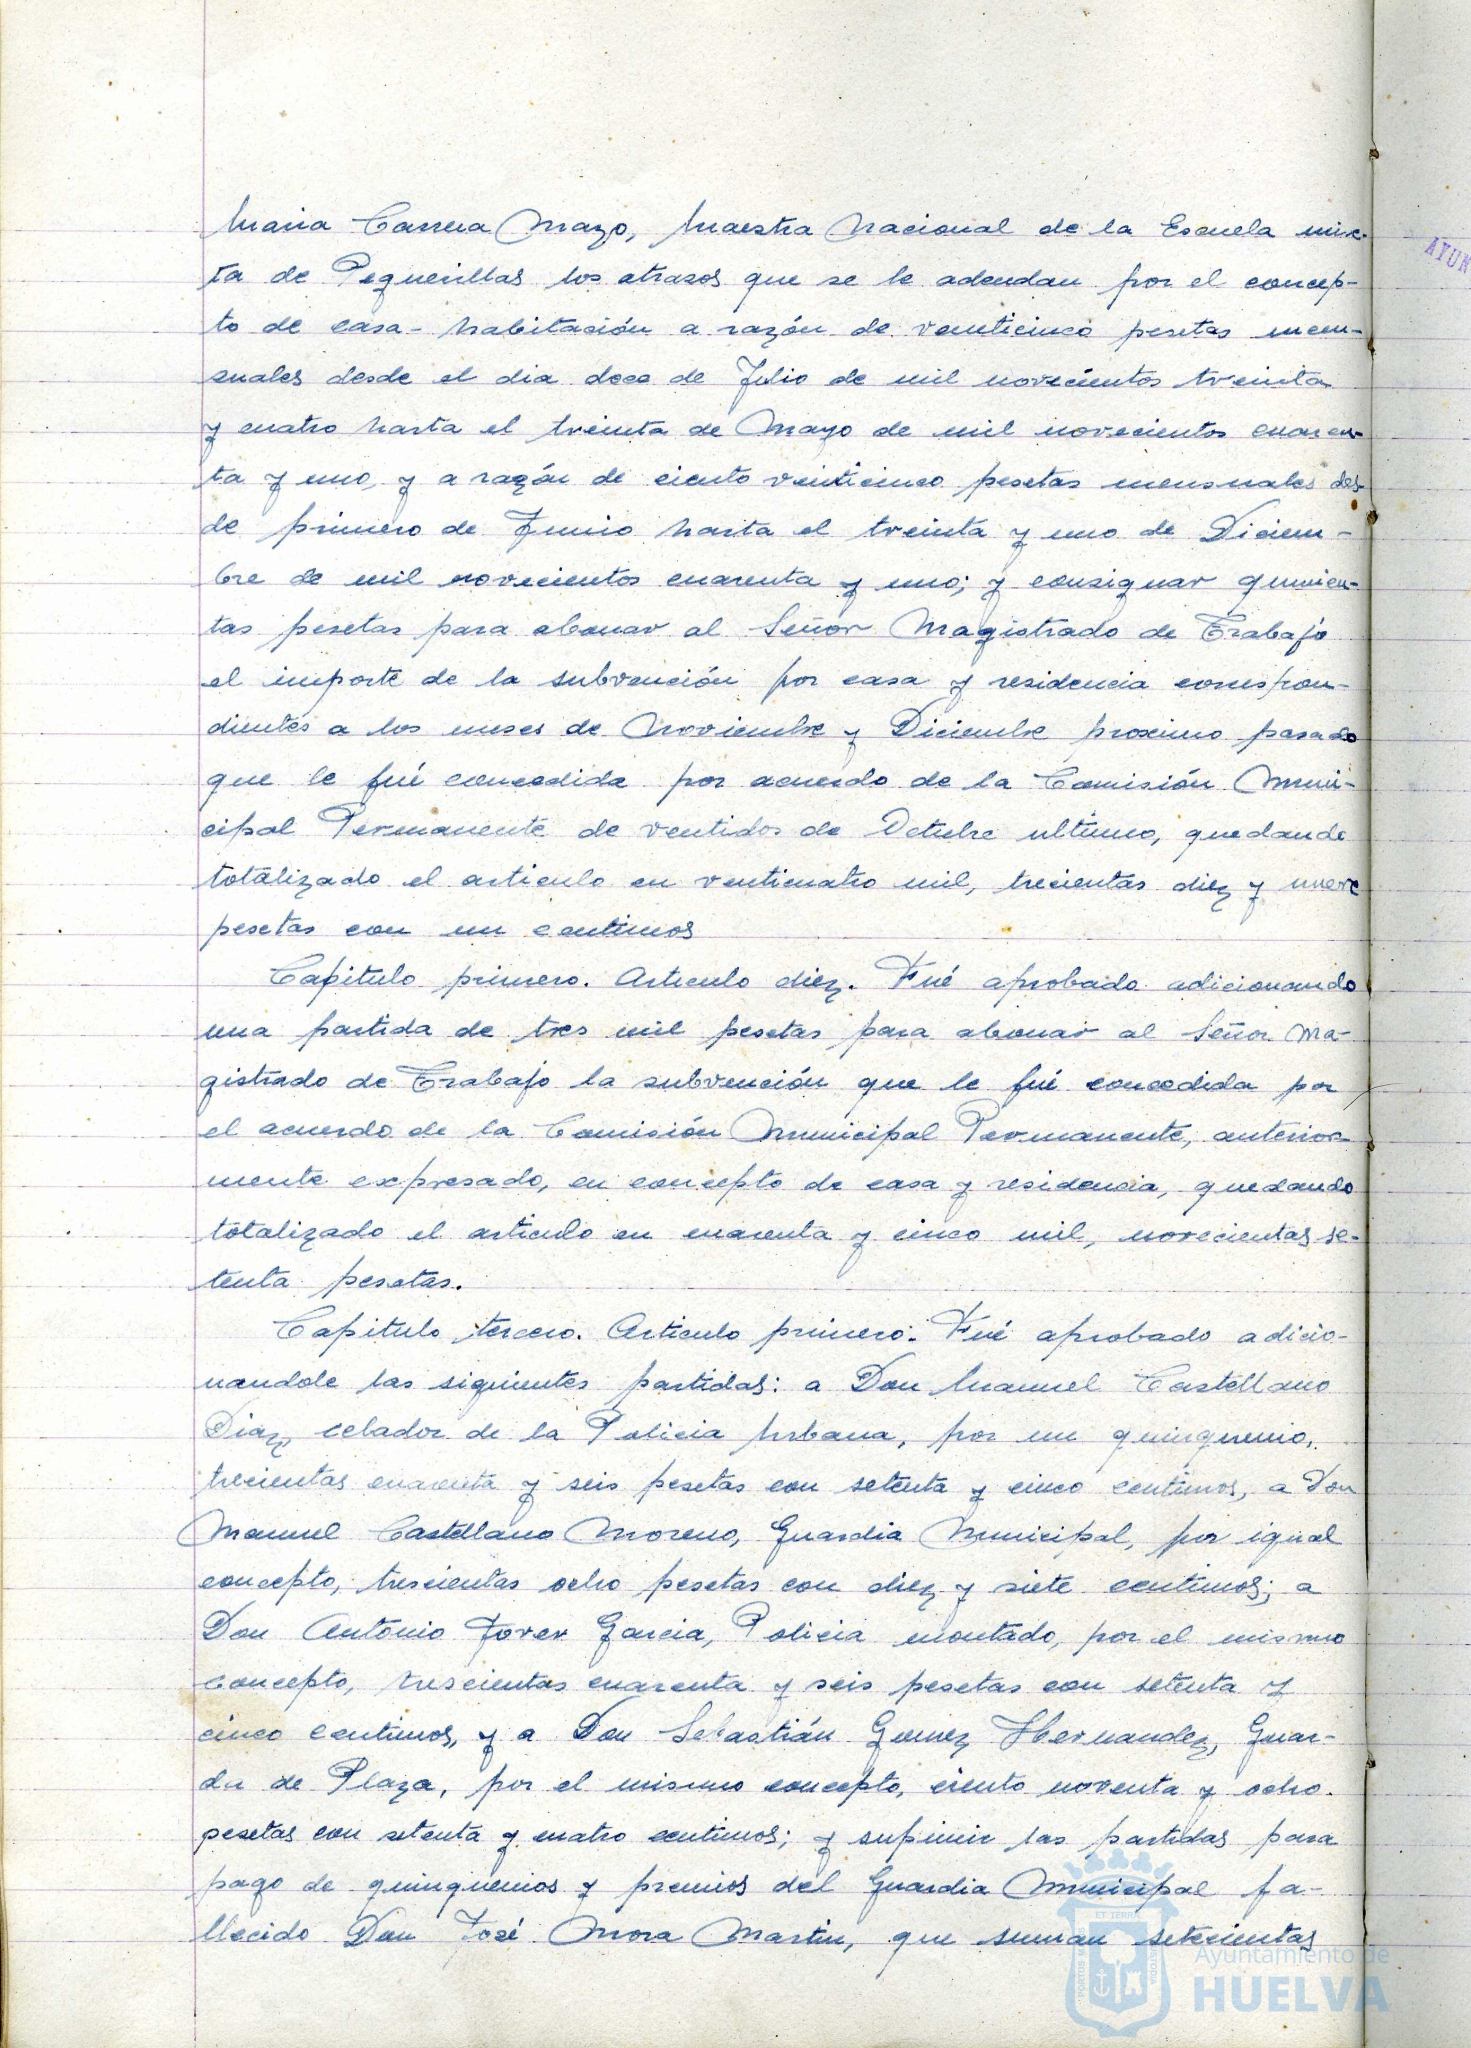 Maria Carrera Mazo, Maestra Nacional de la Escuela mix-
ta de Peguerillas los atrasos que se le adeudan por el concep-
to de casa-habitación a razón de veinticinco pesetas men-
suales desde el dia doce de Julio de mil novecientos treinta
y cuatro hasta el treinta de Mayo de mil novecientos cuaren-
ta y uno, y a razón de ciento veinticinco pesetas mensuales des-
de primero de Junio hasta el treinta y uno de Diciem-
bre de mil novecientos cuarenta y uno; y consignar quinien-
tas pesetas para abonar al Señor Magistrado de Trabajo
el importe de la subvención por casa y residencia correspon-
dientes a los meses de Noviembre y Diciembre proximo pasado
que le fué concedida por acuerdo de la Comisión Muni-
cipal Permanente de ventidos de Octubre ultimo, quedando
totalizado el articulo en venticuatro mil, trecientas diez y nueve
pesetas con un centimos
Capitulo primero. Articulo diez. Fué aprobado adicionando
una partida de tres mil pesetas para abonar al Señor Ma-
gistrado de Trabajo la subvención que le fué concedida por
el acuerdo de la Comisión Municipal Permanente, anterior-
mente expresado, en concepto de casa y residencia, quedando
totalizado el articulo en cuarenta y cinco mil, novecientas se-
tenta pesetas.
Capitulo tercero. Articulo primero. Fué aprobado adicio-
nandole las siguientes partidas: a Don Manuel Castellano
Diaz, celador de la Policia Urbana, por un quinquenio,
trecientas cuarenta y seis pesetas con setenta y cinco centimos, a Don
Manuel Castellano Moreno, Guardia Municipal, por igual
concepto, trescientas ocho pesetas con diez y siete centimos; a
Don Antonio Tover Garcia, Policia montado, por el mismo
concepto, trescientas cuarenta y seis pesetas con setenta y
cinco centimos, y a Don Sebastián Gomez Hernandez, Guar-
da de Plaza, por el mismo concepto, ciento noventa y ocho
pesetas con setenta y cuatro centimos; y supimir las partidas para
pago de quinquenios y premios del Guardia Municipal fa-
llecido Don José Mora Martin, que suman setecientas
AYUN
Ayuntamiento de
HUELVA